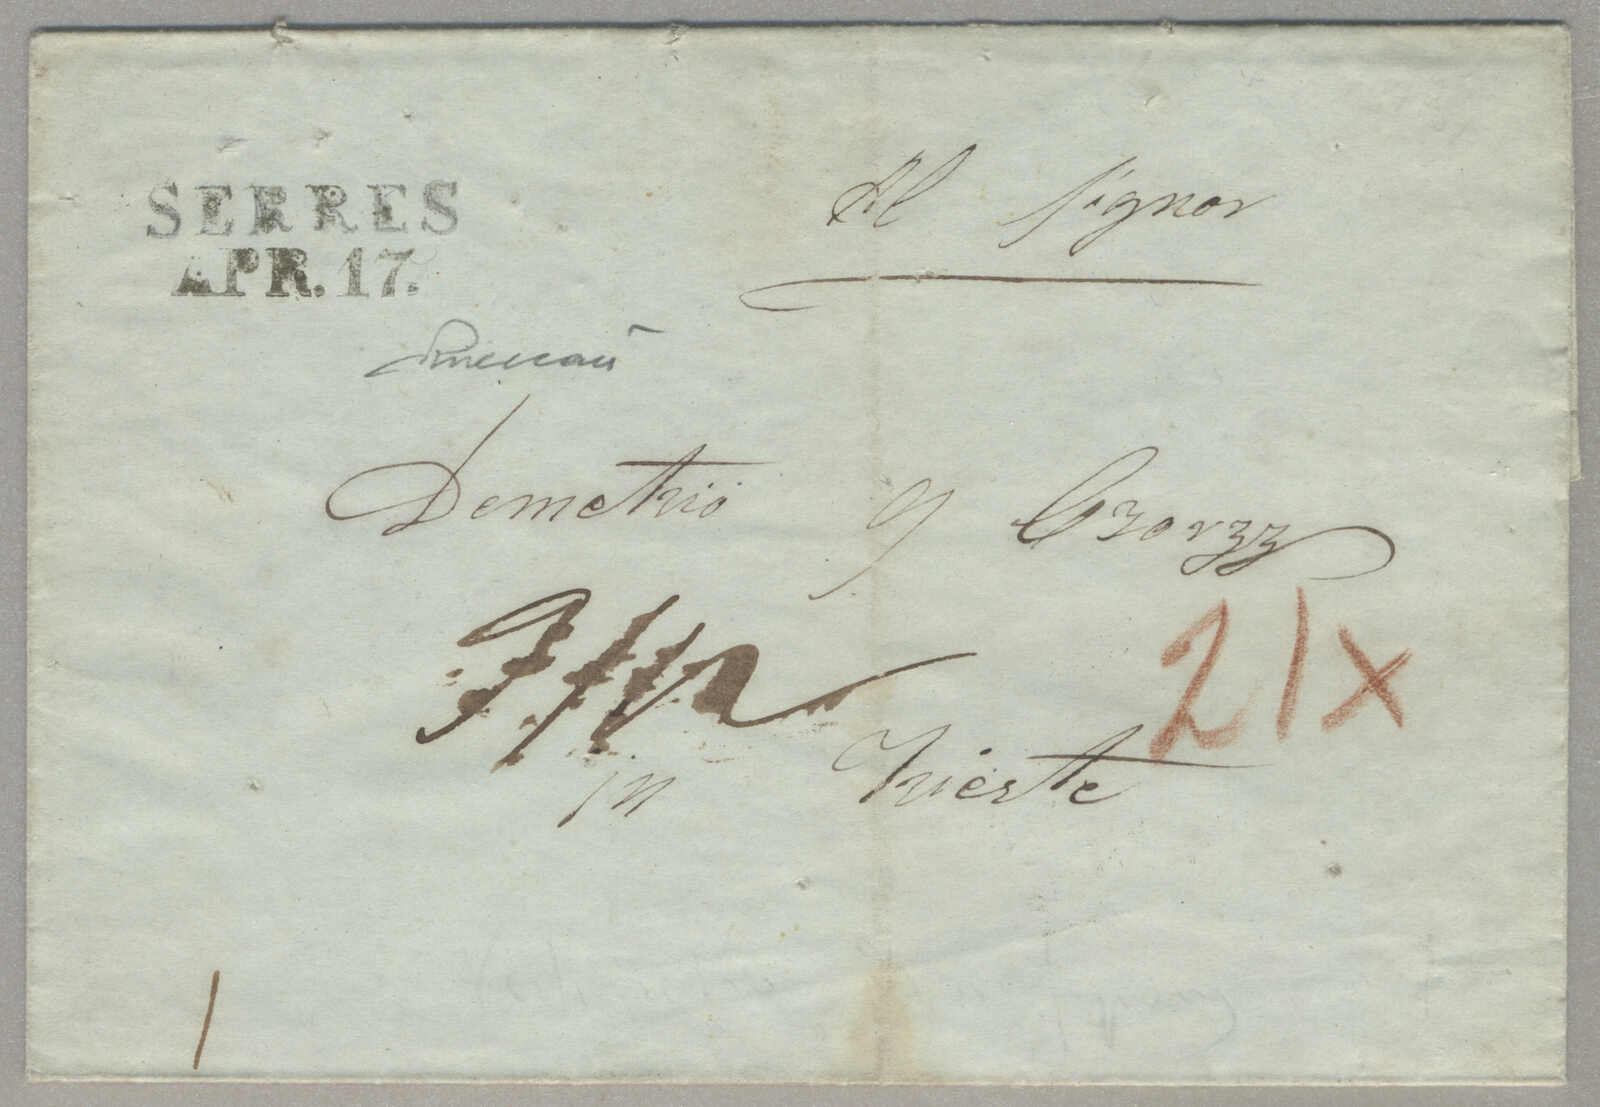 SERRES
APR. 17.
Al Signor
Demetrio G Czorzy
21x
in Trieste